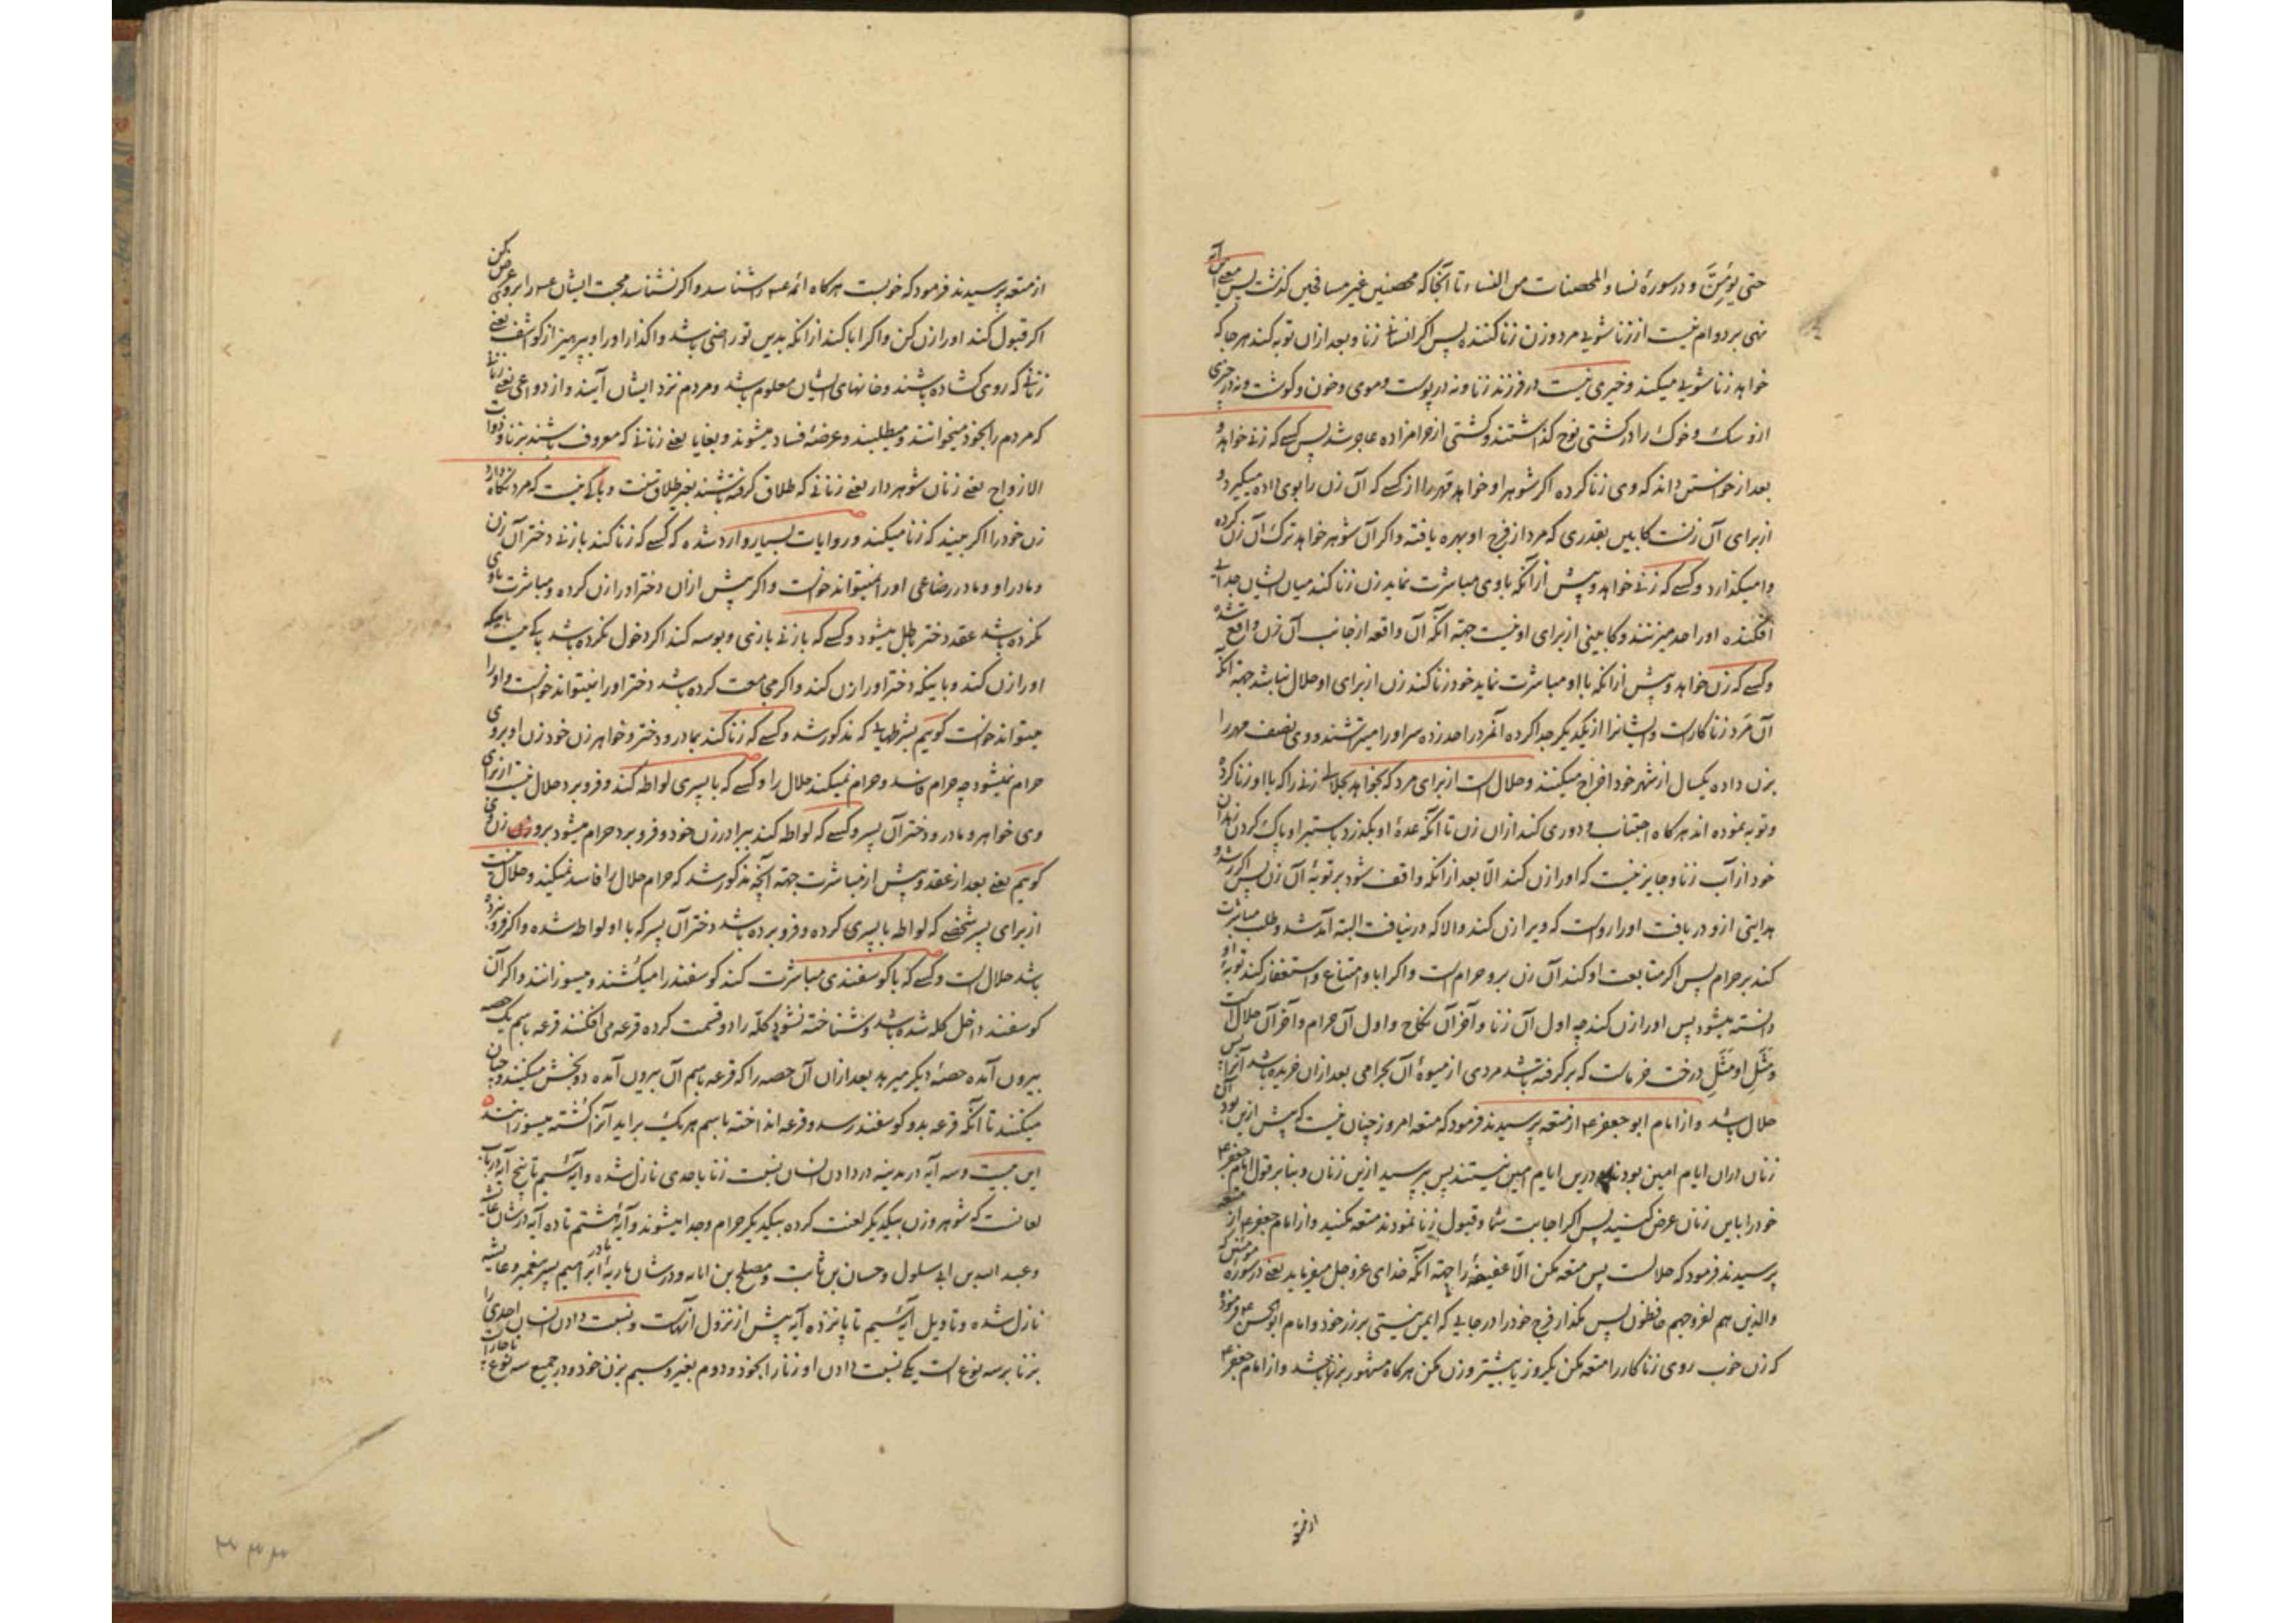 حتی یؤمنّ و در سورۀ نساء و المحصنات من النساء تا آنجا که محصنین غیر مسافحین کذشت پس معنی این آیه
نهی بر دوام نیست از زناشویی مرد و زن زنا کننده پس اکر انسانی زنا و بعد از ان توبه کند هر جا که
خواهد زناشویی میکند و خیری نیست در فرزند زنا و نه در پوست و موی و خون و کوشت و نه در چیزی
ازو سک و خوک را در کشتی نوح کذاشتند و کشتی از حرامزاده عاجز شد پس کسی که زنی خواهد و
بعد از خواستن داند که وی زنا کرده اکر شوهر او خواهد قهر را از کسی که آن زن را بوی داده میکیرد و
از برای آن زنست کابین بقدری که مرد از فرج او بهره یافته و اکر آن شوهر خواهد ترک آن زن کرده
وامیکذارد و کسی که زنی خواهد و پیش از آنکه با وی مباشرت نماید زن زنا کند میان ایشان جدایی
افکنده او را حد میزنند و کابینی از برای او نیست جهته آنکه آن واقعه از جانب آن زن واقع شده
و کسی که زن خواهد و پیش از آنکه با او مباشرت نماید خود زنا کند زن از برای او حلال نباشد جهته آنکه
آن مرد زناکارست و ایشانرا از یکدیکر جدا کرده آنمرد را حد زده سر او را میتراشند و وی نصف مهر را
بزن داده یکسال از شهر خود اخراج میکنند و حلال است از برای مرد که بخواهد بحلالی زنی را که با او زنا کرده
و توبه نموده اند هر کاه اجتناب و دوری کند از ان زن تا آنکه عدۀ او بکذرد باستبرا و پاک کردن زهدان
خود از آب زنا و جایز نیست که او را زن کند الّا بعد از آنکه واقف شود بر توبۀ آن زن پس اکر رشد و
هدایتی ازو دریافت او را رواست که ویرا زن کند والا که در نیافت البته آمد شد و طلب مباشرت
کند بر حرام پس اکر متابعت او کند آن زن برو حرام است و اکر ابا و امتناع و استغفار کند توبۀ او
دانسته میشود پس او را زن کند چه اول آن زنا و آخر آن نکاح و اول آن حرام و آخر آن حلال است
و مَثَل او مَثَل درخت خرماست که بر کرفته باشد مردی از میوۀ آن بحرامی بعد از ان خریده باشد آنرا پس
حلال باشد و از امام ابو جعفر ع از متعه پرسیدند فرمود که متعه امروز چنان نیست که پیش ازین بود آن
زنان در ان ایام امین بودند و درین ایام امین نیستند پس بپرسید ازین زنان و بنا بر قول امام جعفر ع
خود را باین زنان عرض کنید پس اکر اجابت شما و قبول زنا نمودند متعه مکنید و از امام جعفر ع از متعه
پرسیدند فرمود که حلالست پس متعه مکن الّا عفیفه را جهته آنکه خدای عزوجل میفرماید یعنی در سوره مؤمنین که
والذین هم لفروجهم حافظون پس مکذار فرج خود را در جایی که ایمن نیستی بر زر خود و امام ابو الحسن ع فرمود
که زن خوب روی زناکار را متعه مکن یکروز یا بیشتر و زن مکن هر کاه مشهور بزنا باشد و از امام جعفر ع
از متعه
از متعه پرسیدند فرمود که خوبست هر کاه ائمه عـ را شناسد و اکر نشناسد محبت ایشان عـ را بر وی عرض کن
اکر قبول کند او را زن کن و اکر ابا کند از آنکه بدین تو راضی باشد واکذار او را و بپرهیز از کواشف یعنی
زنانی که روی کشاده باشند و خانهای ایشان معلوم باشد و مردم نزد ایشان آیند و از دواعی یعنی زنانی
که مردم را بخود میخوانند و میطلبند و عرضۀ فساد میشوند و بغایا یعنی زنانی که معروف باشند بزنا و ذوات
الازواج یعنی زنان شوهر دار یعنی زنانی که طلاق کرفته باشند بغیر طلاق سنت و باکی نیست که مرد نکاه دارد
زن خود را اکر بیند که زنا میکند و روایات بسیار وارد شده که کسی که زنا کند با زنی دختر آن زن
و مادر او و مادر رضاعی او را نمیتواند خواست و اکر پیش از ان دختر او را زن کرده و مباشرت با وی
نکرده باشد عقد دختر باطل میشود و کسی که با زنی بازی و بوسه کند اکر دخول نکرده باشد باکی نیست باینکه
او را زن کند و باینکه دختر او را زن کند و اکر مجامعت کرده باشد دختر او را نمیتواند خواست و او را
میتواند خواست کویم بشرطهایی که مذکور شد و کسی که زنا کند بمادر و دختر و خواهر زن خود زن او بر وی
حرام نمیشود چه حرام فاسد و حرام نمیکند حلال را و کسی که با پسری لواطه کند و فرو برد حلال نیست از برای
وی خواهر و مادر و دختر آن پسر و کسی که لواطه کند ببرادر زن خود و فرو برد حرام میشود برو زن وی
کویم یعنی بعد از عقد و پیش از مباشرت جهته آنچه مذکور شد که حرام حلال را فاسد نمیکند و حلال نیست
از برای پسر شخصی که لواطه با پسری کرده و فرو برده باشد دختر آن پسر که با او لواطه شده و اکر فرو نبرده
باشد حلال است و کسی که با کوسفندی مباشرت کند کوسفند را میکشند و میسوزانند و اکر آن
کوسفند داخل کله شده باشد و شناخته نشود کلّه را دو قسمت کرده قرعه می افکنند قرعه باسم یک حصه
بیرون آمده حصۀ دیکر میرهد بعد از ان آن حصه را که قرعه باسم آن بیرون آمده دو بخش میکنند و چنان
میکنند تا آنکه قرعه بدو کوسفند رسد و قرعه انداخته باسم هر یک براید آنرا کشته میسوزانند
این بیست و سه آیه در مدینه در دادن انسان نسبت زنا باحدی نازل شده و آیۀ ششم تا پنج آیه در باب
لعانست که شوهر و زن بیکدیکر لعنت کرده بیکدیکر حرام و جدا میشوند و آیۀ هشتم تا ده آیه در شان عایشه
و عبد الله بن ابی سلول و حسان بن ثابت و مصلح بن اثاثه و در شان ماریۀ مادر ابراهیم پسر پیغمبر و عایشه
نازل شده و تاویل آیۀ سیم تا پانزده آیه پیش از نزول آنهاست و نسبت دادن انسان احدی را
بزنا بر سه نوع است یکی نسبت دادن او زنا را بخود و دوم بغیر و سیم بزن خود و در جمیع سه نوع